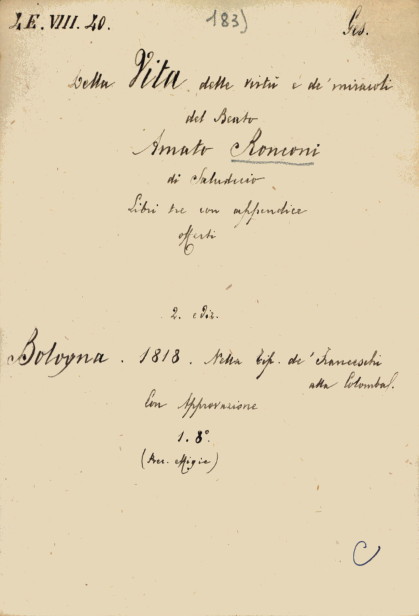 4.E.VIII.40. 183) Ges.
Della Vita, delle virtù e de' miracoli
del Beato
Amato Ronconi
di Saludecio
Libri tre con appendice
offerti
2. ediz.
Bologna. 1818. Nella tip. de' Franceschi
alla Colomba.
Con Approvazione
1. 8°.
C